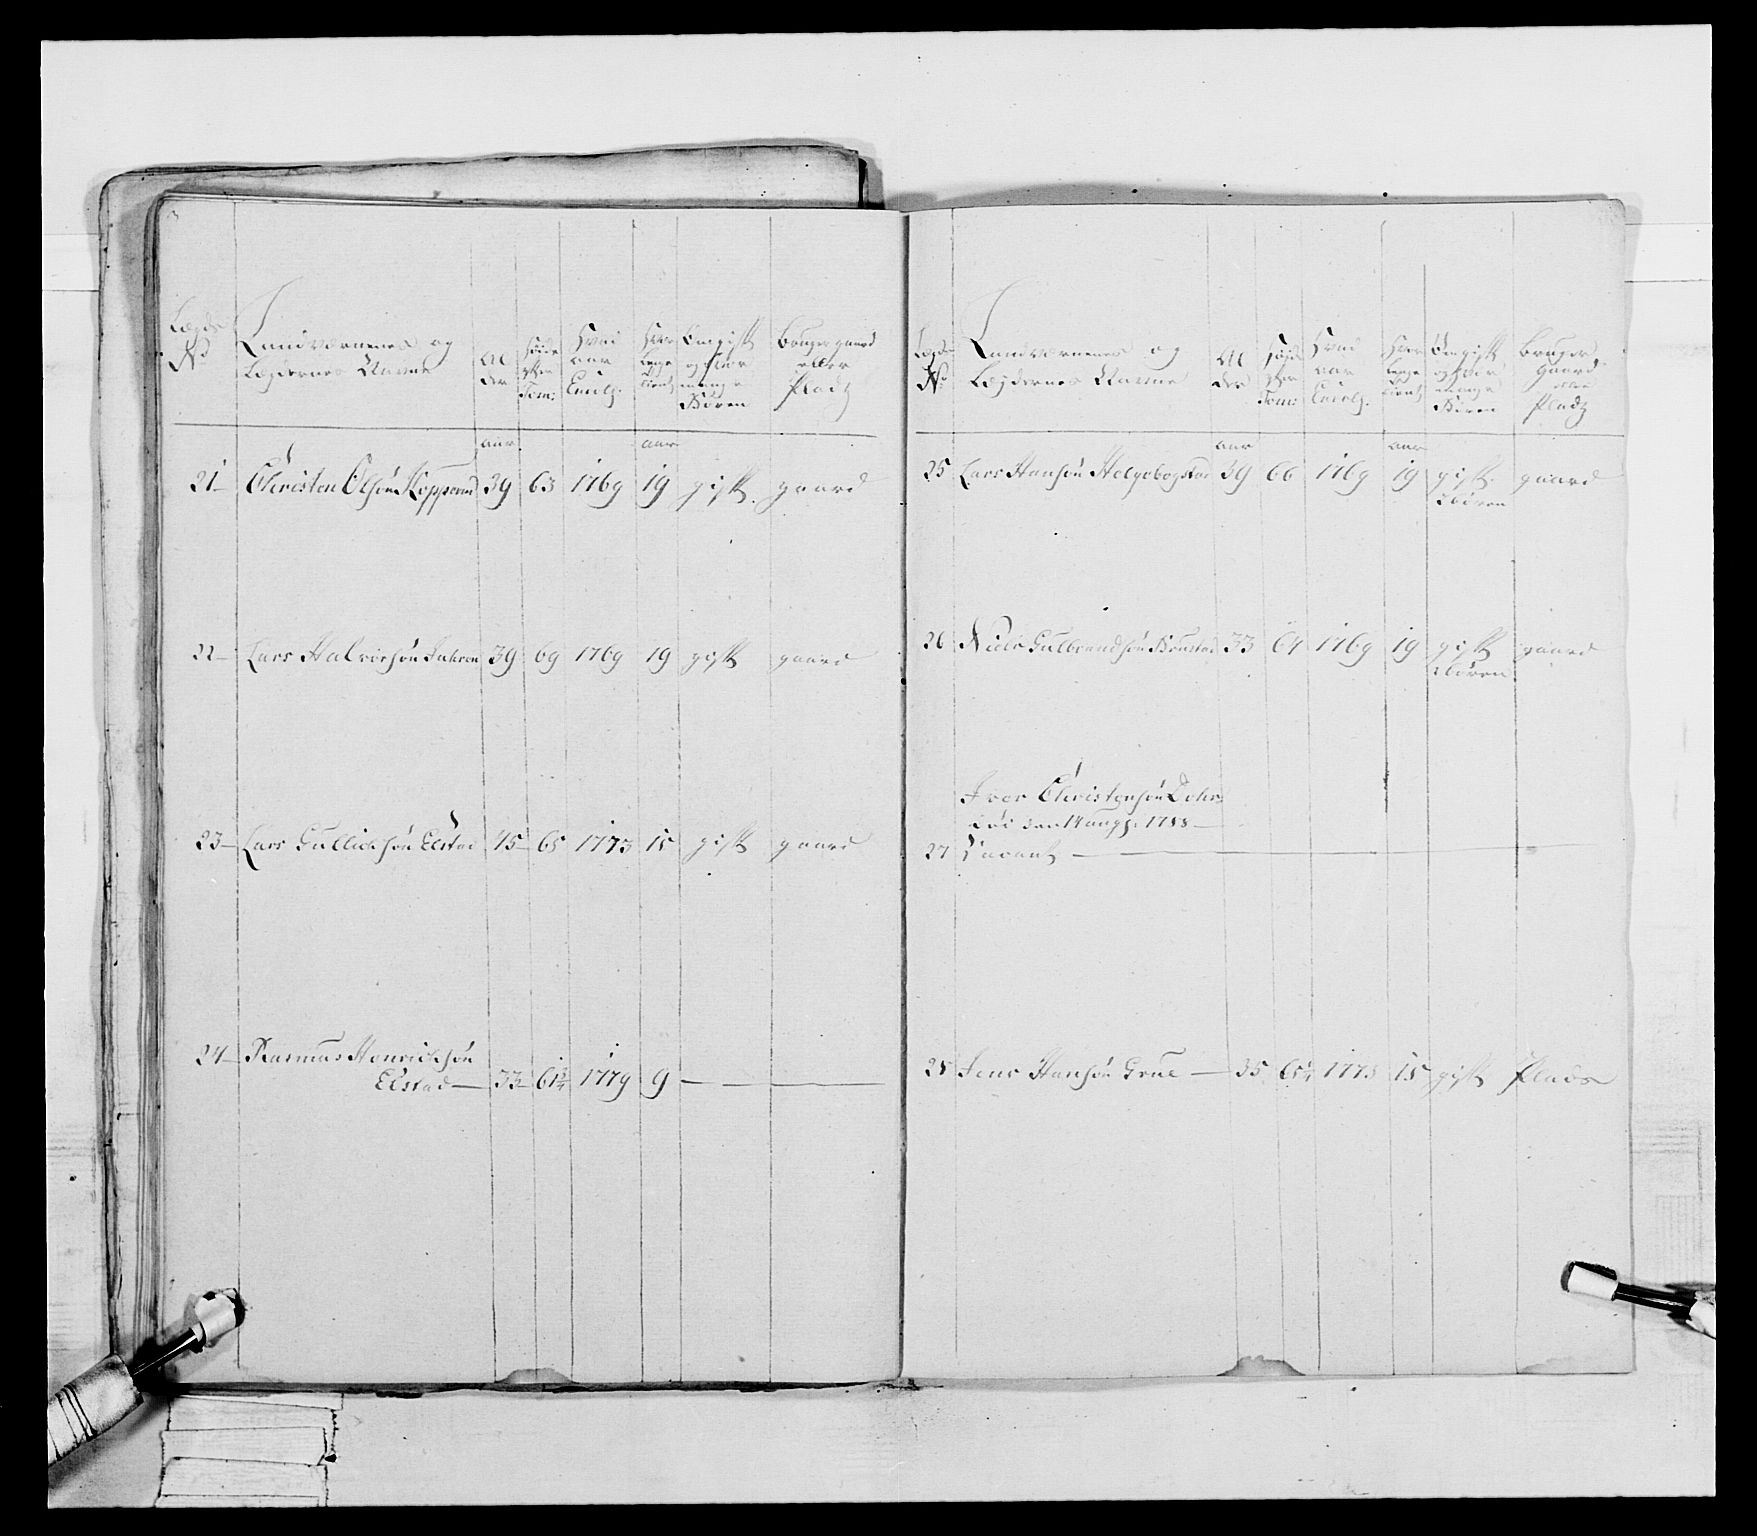 Lægds
No
Landværnenes og
Lægdernes Navne
Al
der
Høide
efter
Tom:
Hvad
aar
i
Hvor
længe
tient
Om gift
og hvor
mange
Børn
Bruger gaard
eller
Pladz
aar
aar
21 Christen Olsøn 39 63 1769 19 gift gaard
22 Lars Halvorsøn 39 69 1769 19 gift gaard
23 Lars Gullichsøn Elstad 45 65 1773 15 gift gaard
24 Rasmus Henrichsøn
Elstad 33 61¾ 1779 9
Lægds
No
Landværnenes og
Lægdernes Navne
Al
der
Høide
efter
Tom:
Hvad
aar
i
Hvor
længe
tient
Om gift
og hvor
mange
Børen
Bruger
Gaard
eller
Pladz
aar
aar
25 Lars Hansøn Helgebogstad 39 66 1769 19 gift gaard
2 børen
26 Niels Gulbrandsøn 33 64 1769 19 gift gaard
Børen
Iver Christensøn
død den 14 aug: 1788
27 Vacant
28 Jens Hansøn Grue 35 65¼ 1773 15 gift Plads